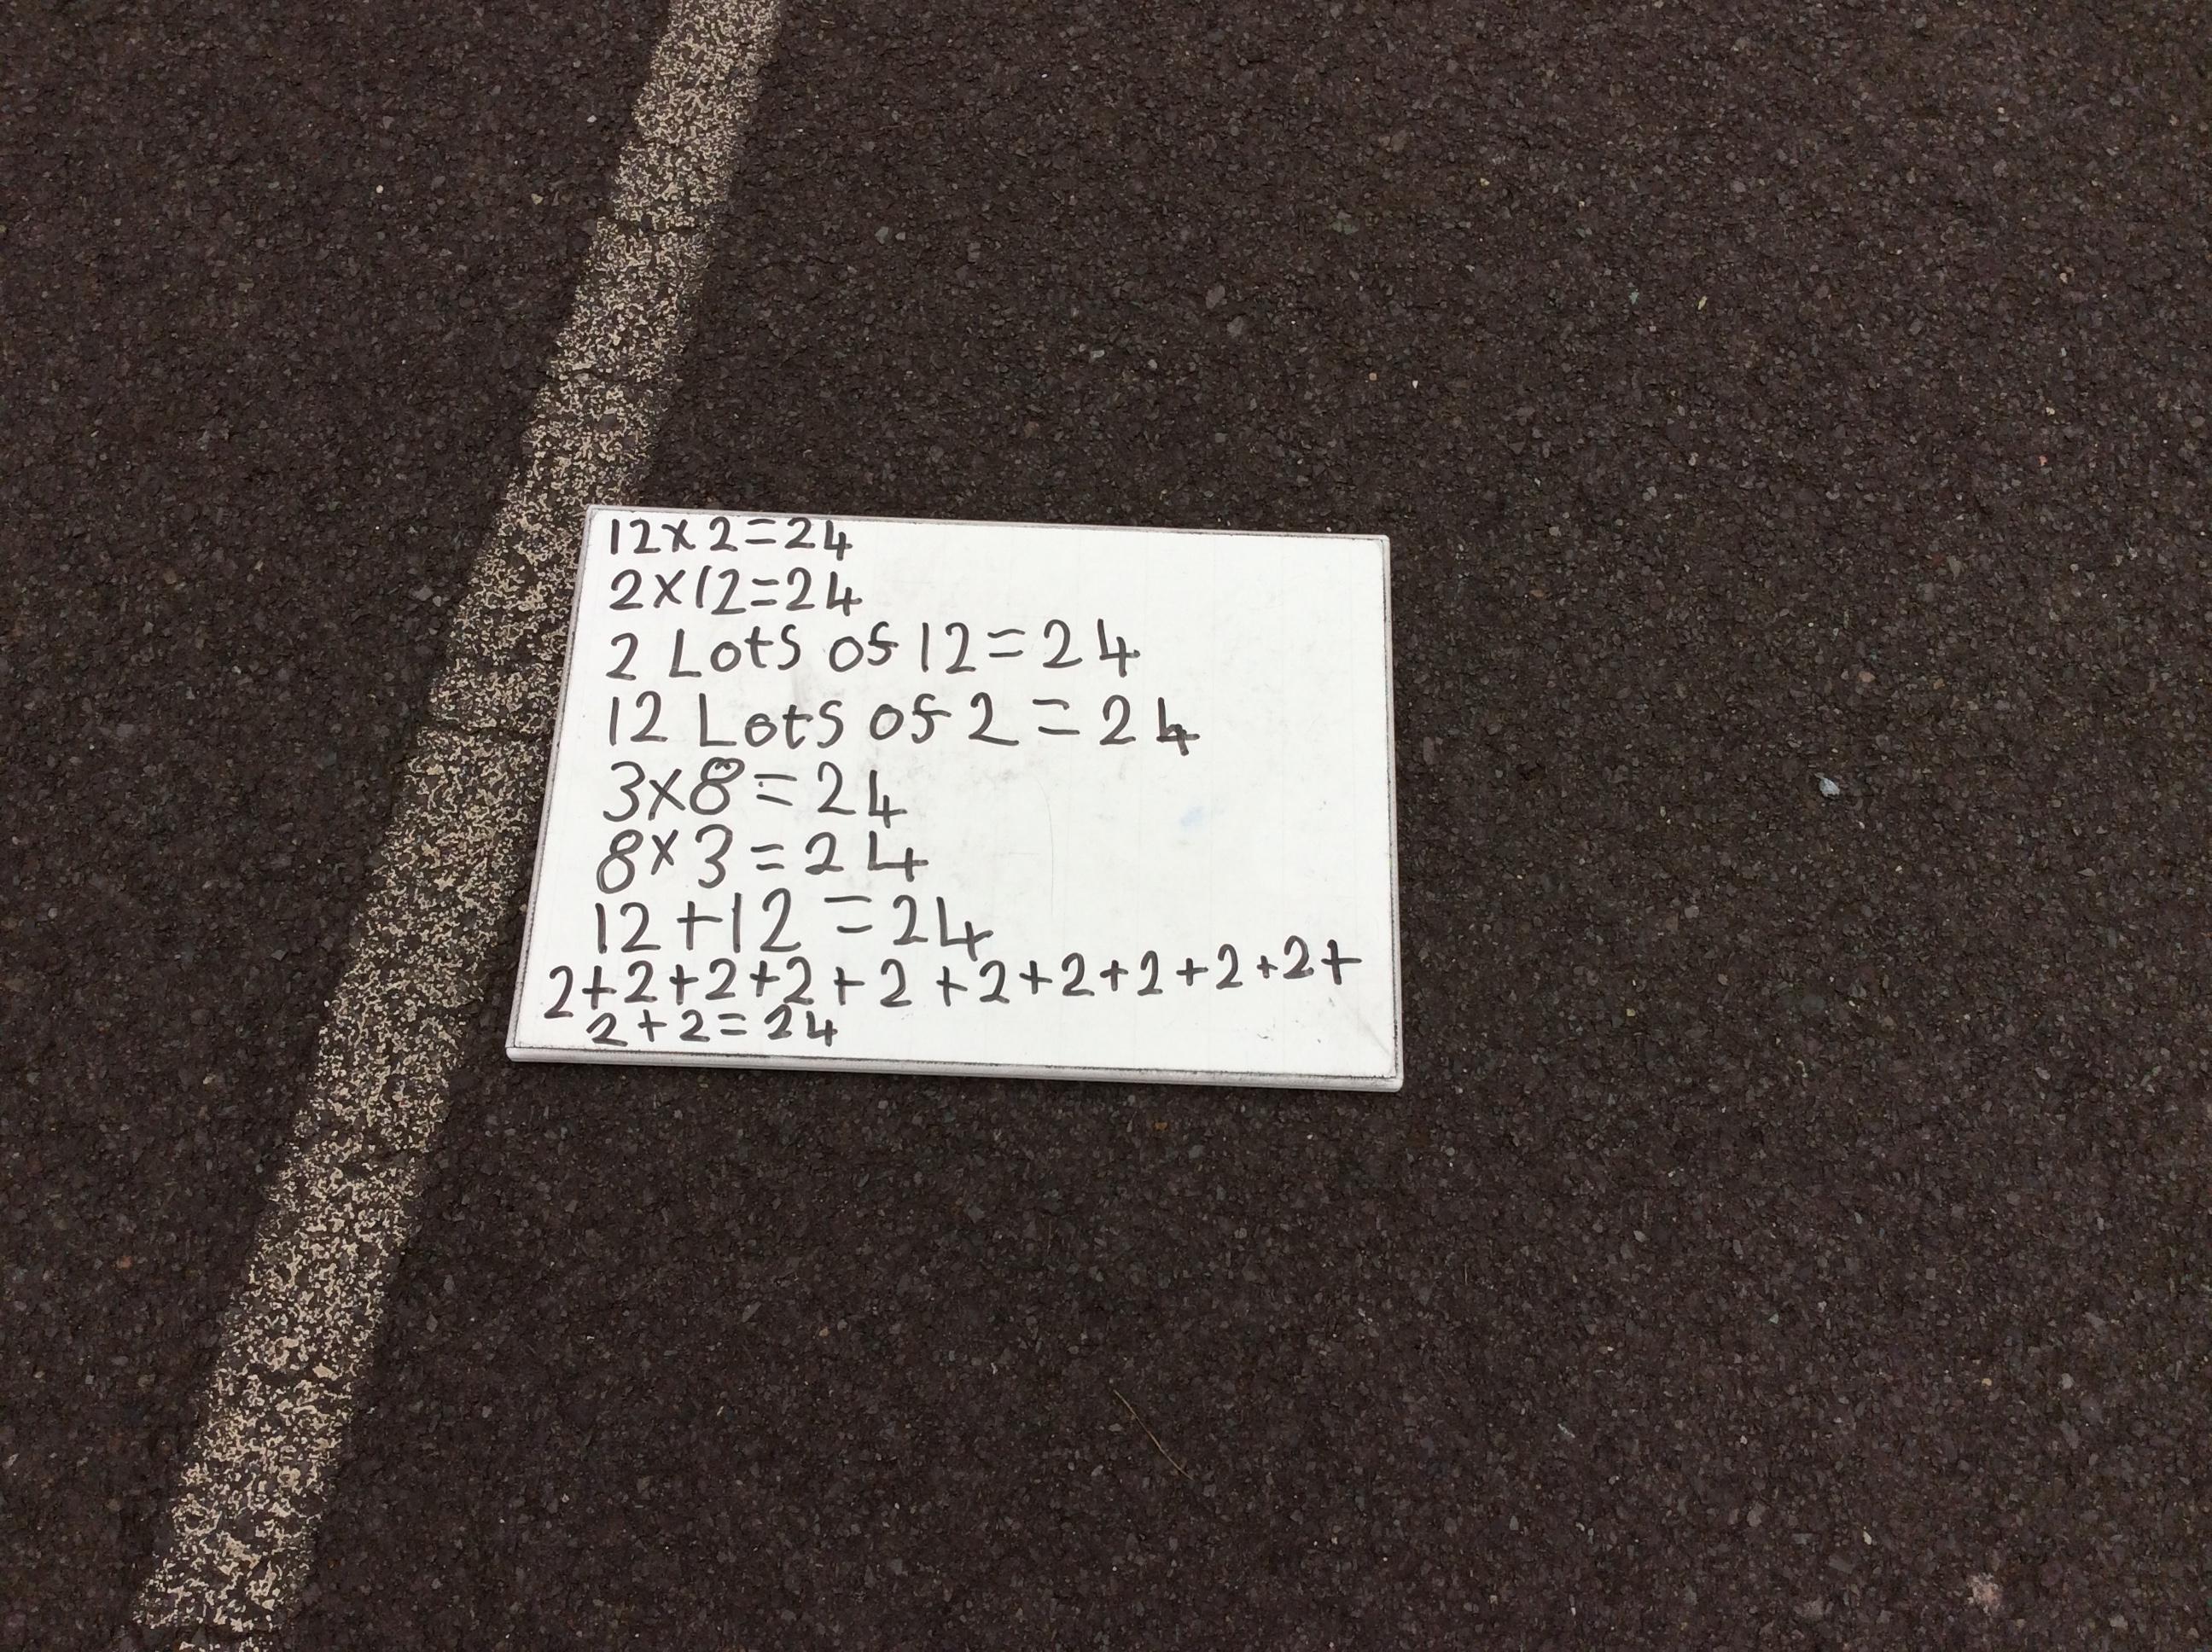 12x2=24
2x12=24
2 Lots of 12=24
12 Lots of 2 = 24
3x8=24
8x3=24
12+12=24
2+2+2+2+2+2+2+2+2+2+
2+2=24